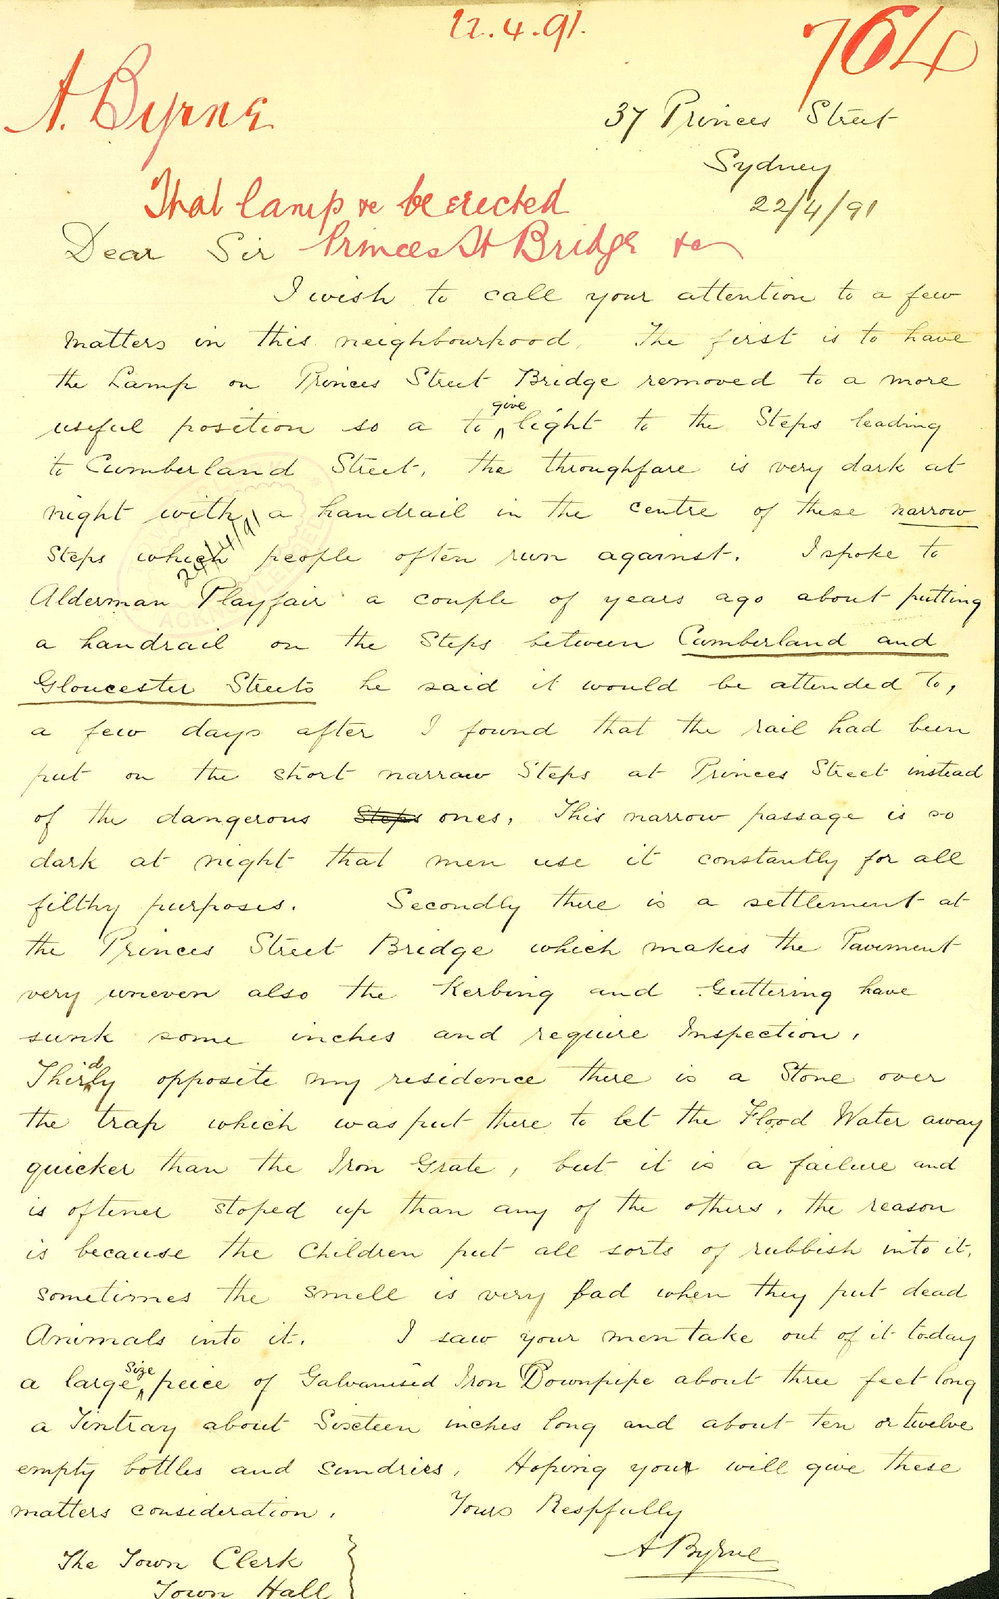 22.4.91.
764
A. Byrne
37 Princes Street
Sydney
22/4/91
That lamp &c be erected
Princes St Bridge &c
Dear Sir
I wish to call your attention to a few
matters in this neighbourhood. The first is to have
the Lamp on Princes Street Bridge removed to a more
useful position so a to give light to the Steps leading
to Cumberland Street, the throughfare is very dark at
night with a handrail in the centre of these narrow
Steps which people often run against. I spoke to
24/4/91
Alderman Playfair a couple of years ago about putting
a handrail on the Steps between Cumberland and
Gloucester Streets he said it would be attended to,
a few days after I found that the rail had been
put on the short narrow Steps at Princes Street instead
of the dangerous Steps ones. This narrow passage is so
dark at night that men use it constantly for all
filthy purposes. Secondly there is a settlement at
the Princes Street Bridge which makes the Pavement
very uneven also the Kerbing and Guttering have
sunk some inches and require Inspection.
Thirdly opposite my residence there is a Stone over
the trap which was put there to let the Flood Water away
quicker than the Iron Grate, but it is a failure and
is oftener stoped up than any of the others, the reason
is because the Children put all sorts of rubbish into it,
sometimes the smell is very bad when they put dead
Animals into it. I saw your men take out of it today
a large size peice of Galvanised Iron Downpipe about three feet long
a Tintray about Sixteen inches long and about ten or twelve
empty bottles and sundries. Hoping you will give these
matters consideration.
Yours Respfully
A Byrne
The Town Clerk
Town Hall